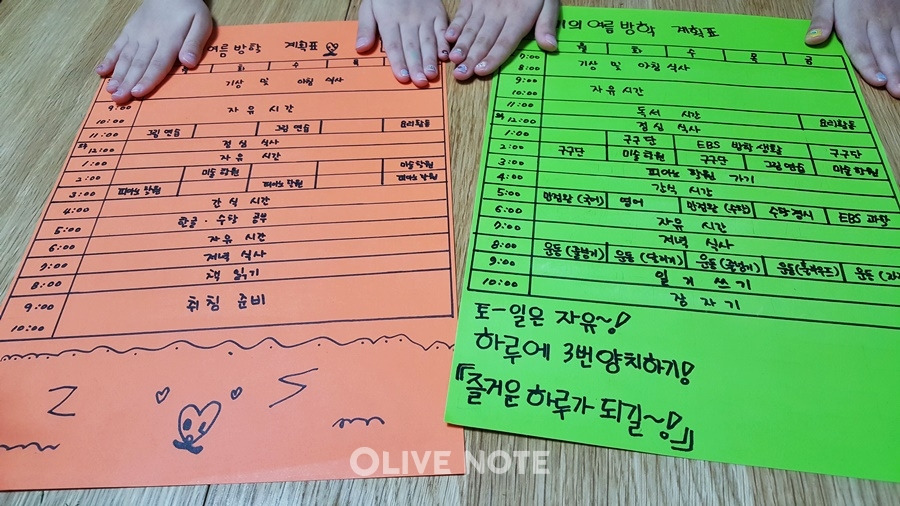 여름 방학 계획표
화 수
기상 및 아침 식사
9:00
10:00 자유 시간
11:00 그림 연습 그림 연습 요리활동
12:00 점심 식사
1:00 자유 시간
2:00 미술학원 미술학원
3:00 피아노 학원 피아노 학원 피아노 학원
4:00 간식 시간
5:00 한글·수학 공부
6:00 자유 시간
7:00 저녁 식사
8:00 책 읽기
9:00 취침 준비
10:00
의 여름 방학 계획표
월 화 수 목 금
7:00
8:00 기상 및 아침 식사
9:00
10:00 자유 시간
11:00 독서 시간 요리활동
12:00 점심 식사
1:00 구구단 EBS 방학생활
2:00 구구단 미술학원 구구단 그림 연습 구구단
3:00 미술학원
4:00 피아노 학원 가기
5:00 간식 시간
6:00 만점왕 (국어) 영어 만점왕 (수학) EBS 과학
7:00 자유 시간
8:00 저녁 식사
9:00 운동 (줄넘기) 운동 (달리기) 운동 (줄넘기) 운동
10:00 일기 쓰기
잠자기
토-일은 자유~!
하루에 3번 양치하기!
『즐거운 하루가 되길~!』
OLIVE NOTE